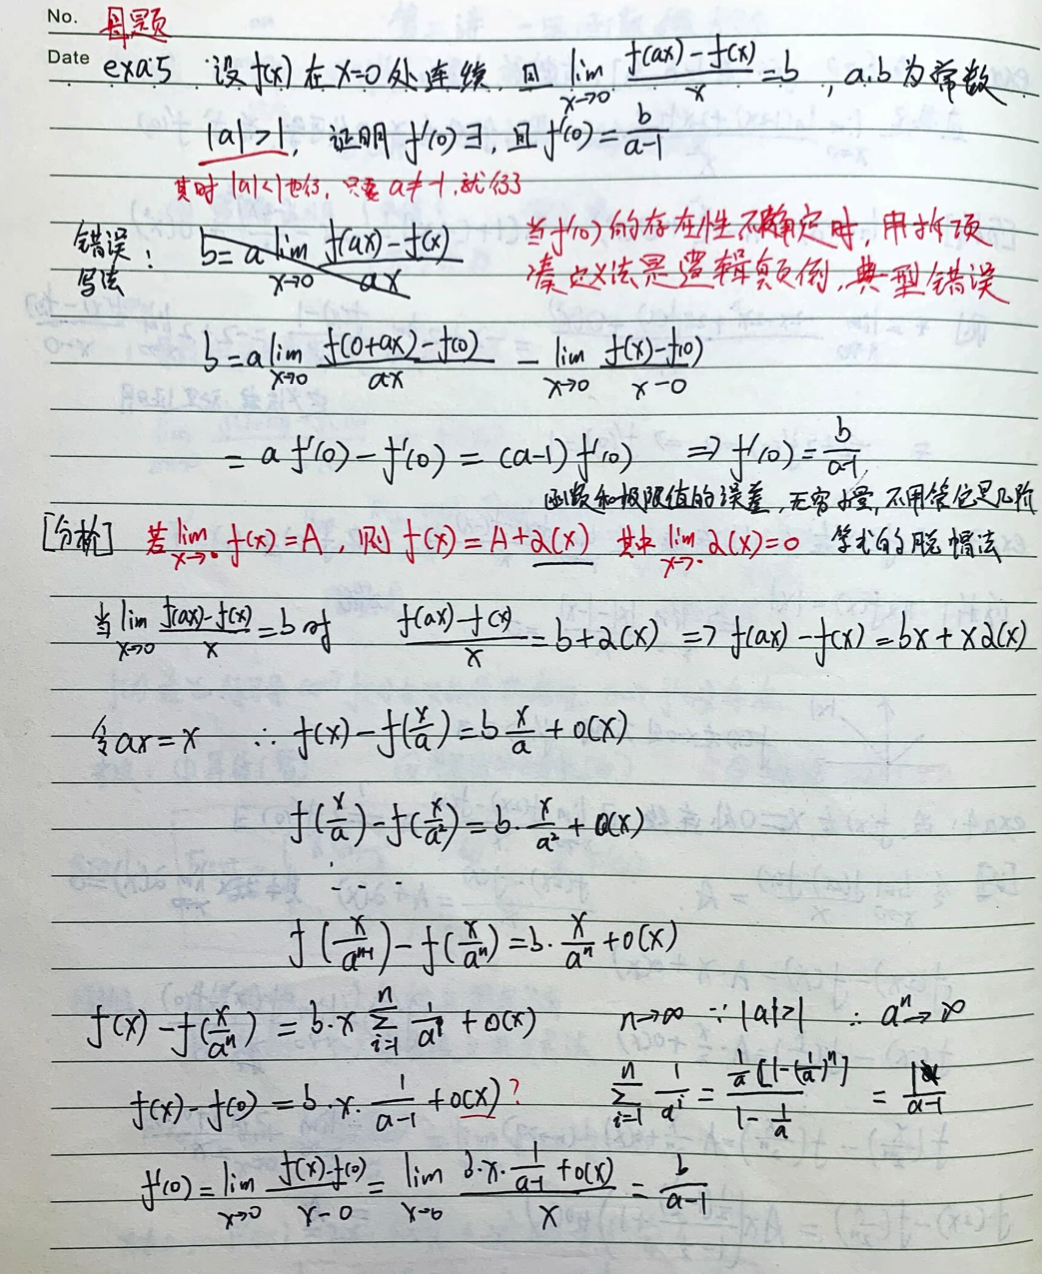 No. 母题
Date exa:5 设f(x)在x=0处连续.且 lim_{x→0} (f(ax)-f(x))/x = b , a.b为常数
|a|>1, 证明f'(0)∃,且f'(0)=b/(a-1)
其时|a|<1也行,只要a≠-1,就行了
错误写法: b=a lim_{x→0} (f(ax)-f(x))/(ax) 当f'(0)的存在性不确定时,用拆项
凑定义法是逻辑颠倒,典型错误
b=a lim_{x→0} (f(0+ax)-f(0))/(ax) - lim_{x→0} (f(x)-f(0))/(x-0)
= a f'(0)-f'(0) = (a-1)f'(0) ⇒ f'(0)=b/(a-1)
函数和极限值的误差,无穷小量,不用管它是几阶
[分析] 若lim_{x→·} f(x)=A,则f(x)=A+α(x) 其中lim_{x→·} α(x)=0 学术的脱帽法
当lim_{x→0} (f(ax)-f(x))/x=b时 (f(ax)-f(x))/x=b+α(x) ⇒ f(ax)-f(x)=bx+xα(x)
令ax=x ∴ f(x)-f(x/a)=b x/a+o(x)
f(x/a)-f(x/a²)=b·x/a²+o(x)
· · ·
f(x/a^{n-1})-f(x/a^n)=b·x/a^n+o(x)
f(x)-f(x/a^n)=b·x Σ_{i=1}^{n} 1/a^i+o(x) n→∞ ∵|a|>1 ∴a^n→∞
f(x)-f(0)=b·x·1/(a-1)+o(x)? Σ_{i=1}^{n} 1/a^i = (1/a[1-(1/a)^n])/(1-1/a) = 1/(a-1)
f'(0)=lim_{x→0} (f(x)-f(0))/(x-0) = lim_{x→0} (b·x·1/(a-1)+o(x))/x = b/(a-1)